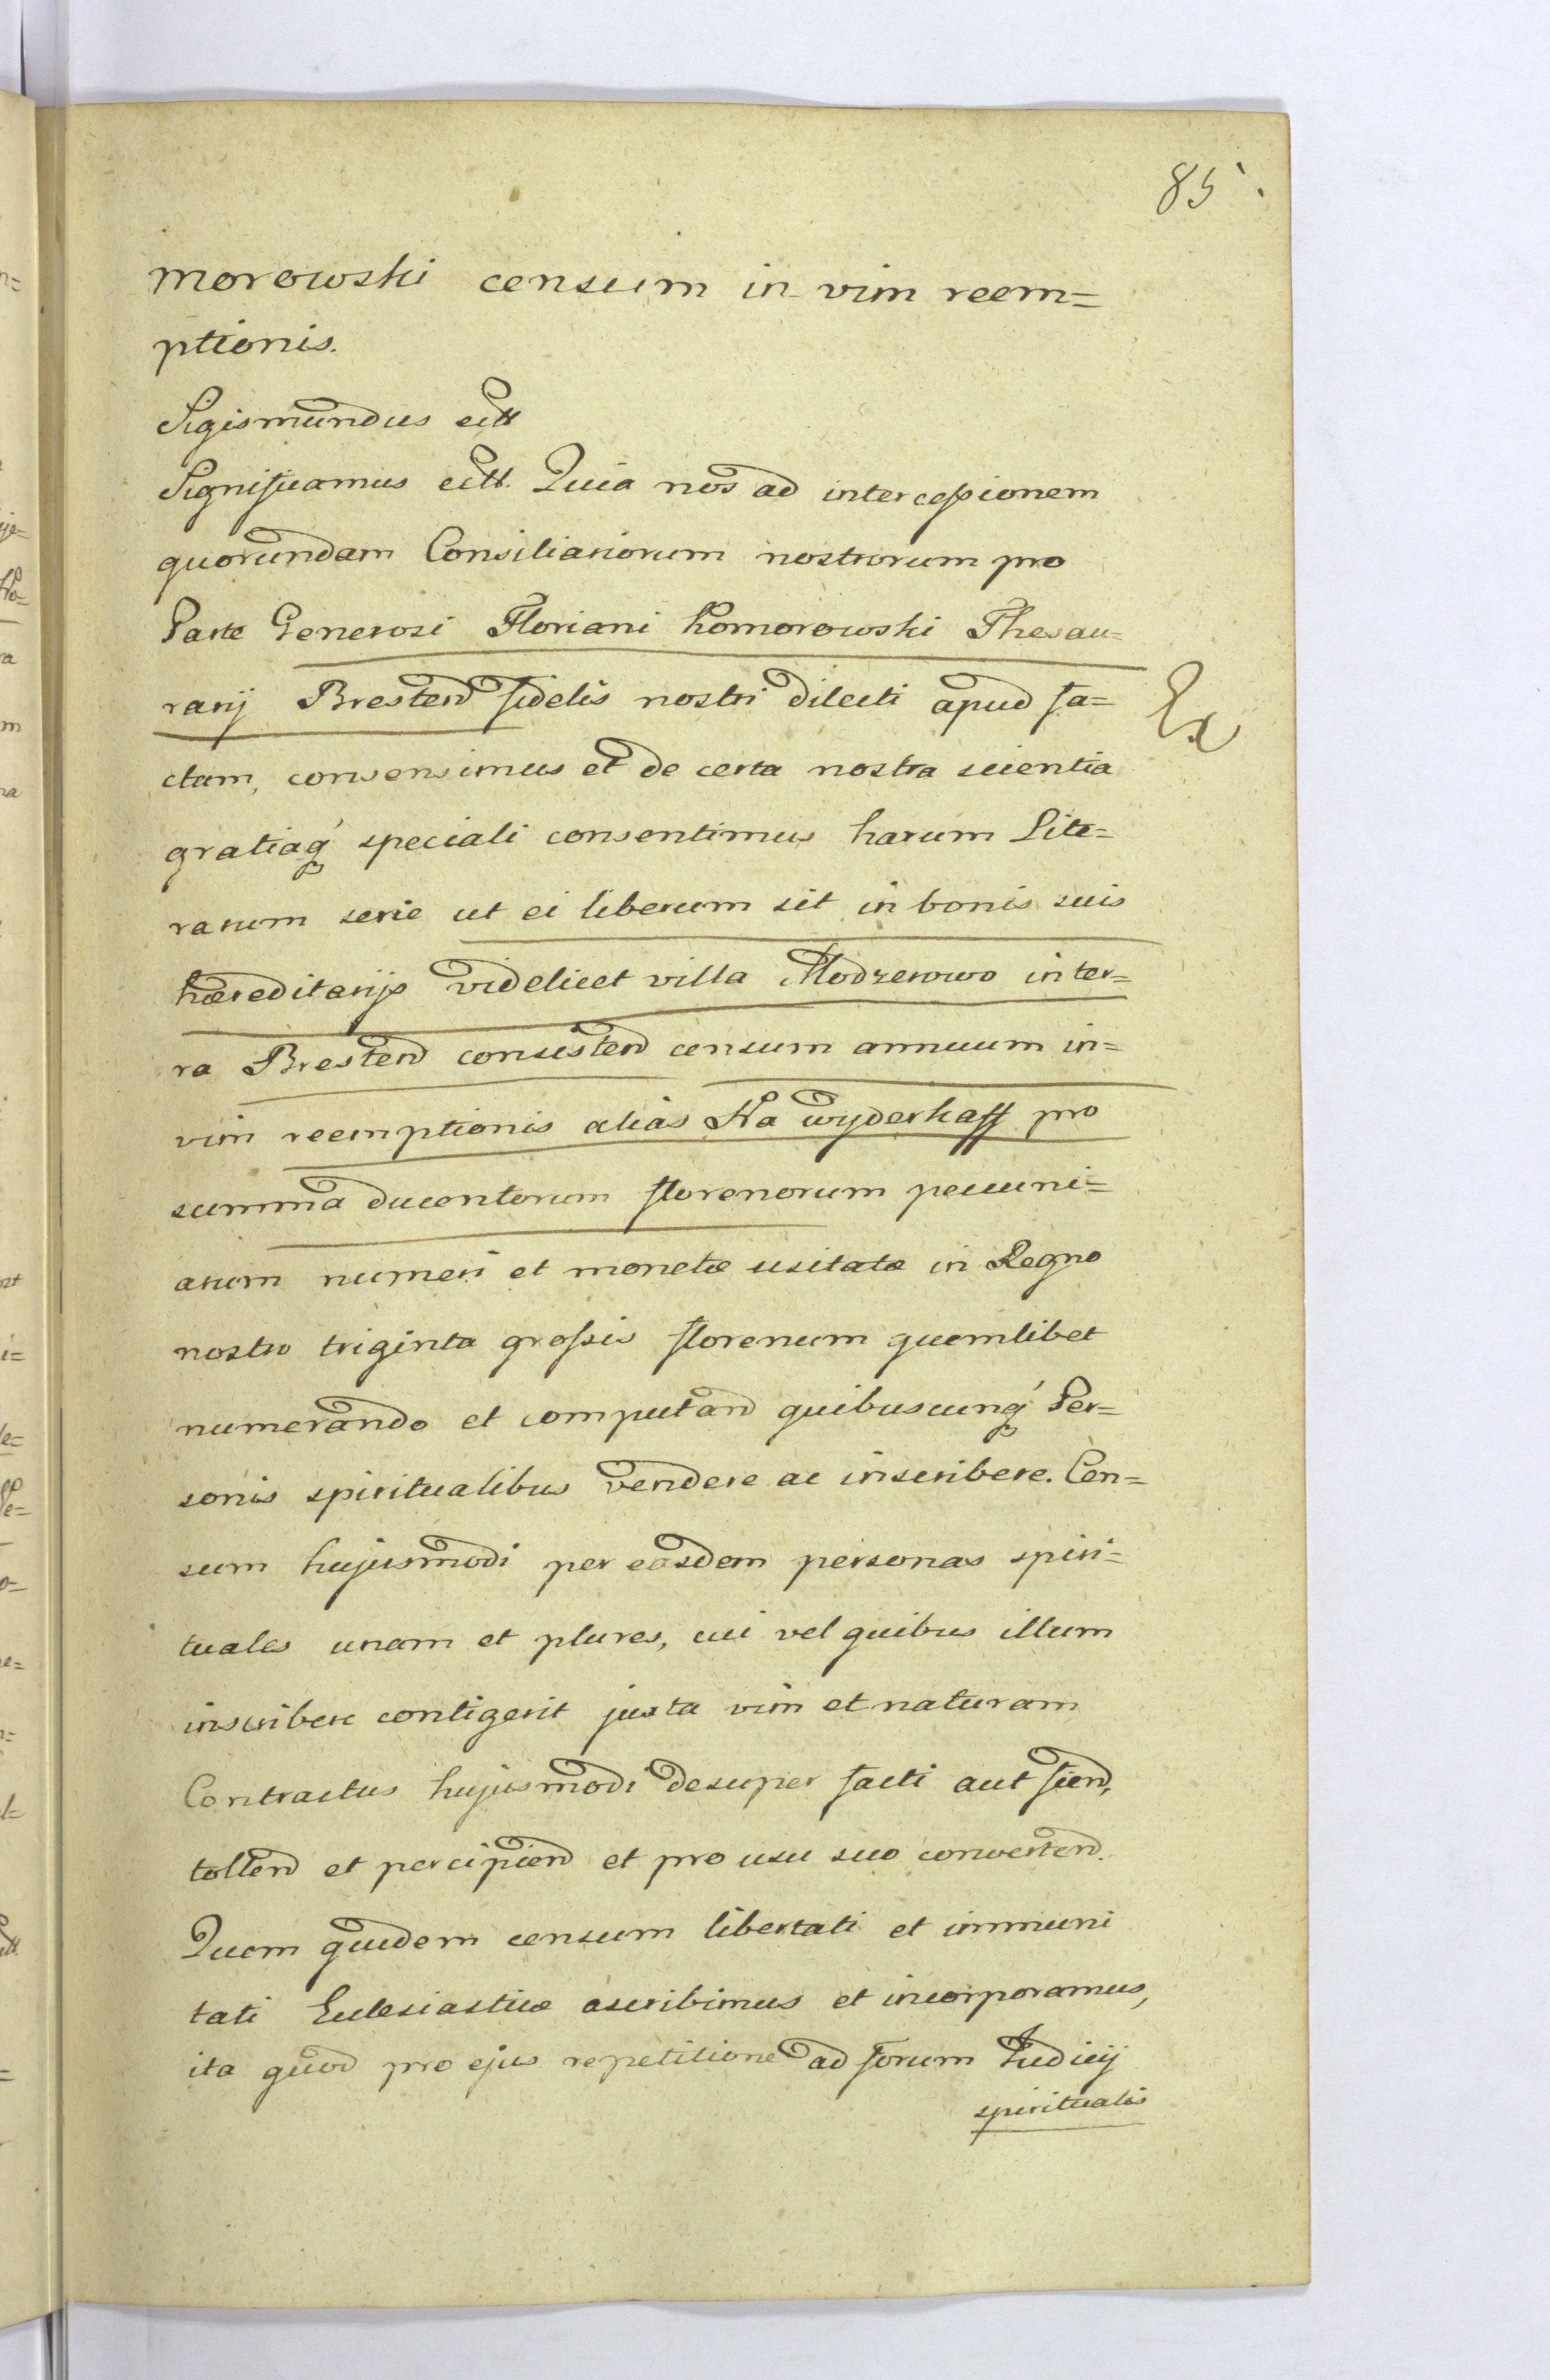 85.
morowski censum in vim reem=
ptionis.
Sigismundus ectt
Significamus ectt. Quia nos ad intercessionem
quorundam Consiliariorum nostrorum pro
Parte Generosi Floriani Komorowski Thesau=
rarij Bresten fidelis nostri dilecti apud fa=
ctam, consensimus et de certa nostra scientia
gratiaq' speciali consentimus harum Lite=
rarum serie ut ei liberum sit in bonis suis
hæreditarijs videlicet villa Modzerowo in ter=
ra Bresten consisten censum annuum in=
vim reemptionis alias Na wyderkaff pro
summa ducentorum florenorum pecuni=
arum numeri et monetæ usitatæ in Regno
nostro triginta grossis florenum quemlibet
numerando et computand quibuscunq' Per=
sonis spiritualibus vendere ac inscribere. Cen=
sum hujusmodi per easdem personas spiri=
tuales unam et plures, cui vel quibus illum
inscribere contigerit juxta vim et naturam
Contractus hujusmodi desuper facti aut fiend,
tollend et percipiend et pro usu suo convertend.
Quem quidem censum libertati et immuni
tati Eclesiasticæ ascribimus et incorporamus,
ita quod pro ejus repetitione ad forum Judicij
spiritualis